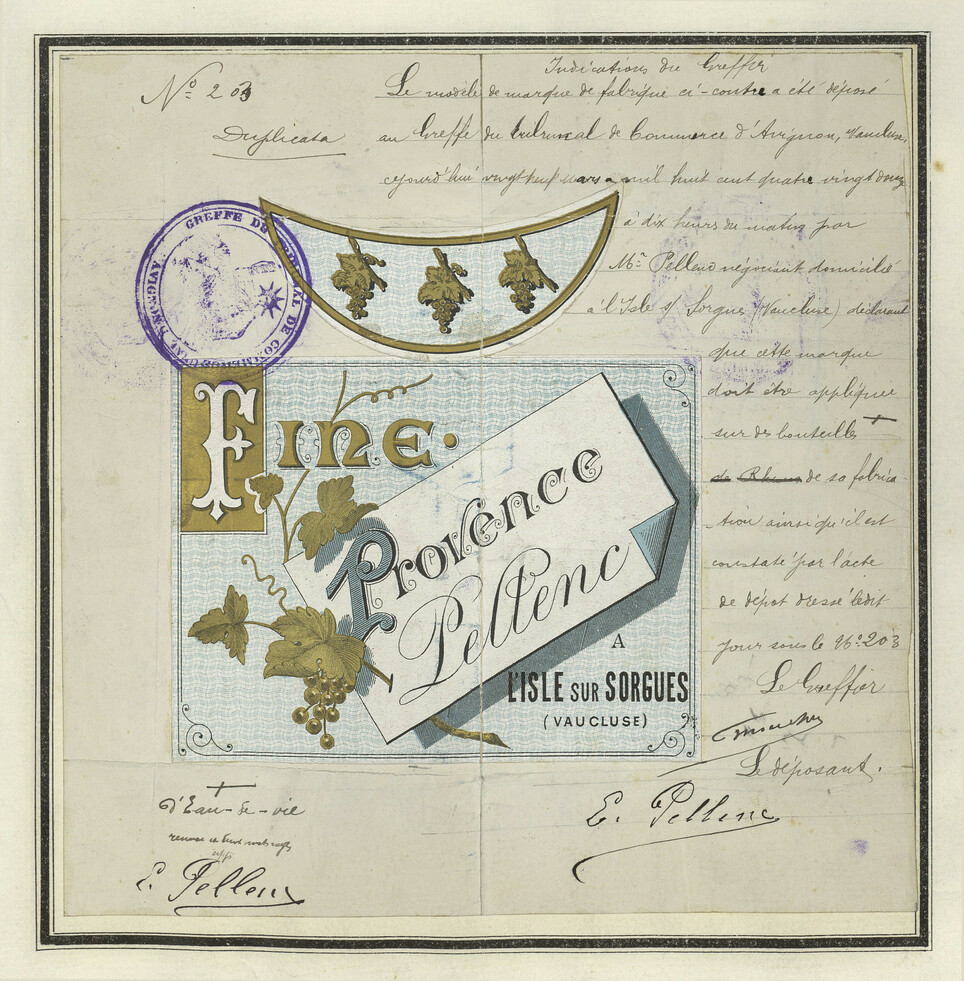 Indications du Greffier
N° 203
Duplicata
Le modèle de marque de fabrique ci-contre a été déposé
au Greffe du tribunal de Commerce d'Avignon, Vaucluse,
cejourd'hui vingt neuf mars mil huit cent quatre vingt douze
à dix heures du matin par
Mr Pellenc négociant domicilié
à l'Isle s/ Sorgue (Vaucluse) déclarant
que cette marque
doit être appliquée
sur des bouteilles +
de Rhum de sa fabrica
tion ainsi qu'il est
constaté par l'acte
de dépôt dressé ledit
jour sous le N° 203
Le Greffier
Le déposant.
E. Pellenc
GREFFE DU TRIBUNAL DE COMMERCE D'AVIGNON
FINE.
Provence
Pellenc
A
L'ISLE SUR SORGUES
(VAUCLUSE)
+
d'Eau-de-vie
E. Pellenc